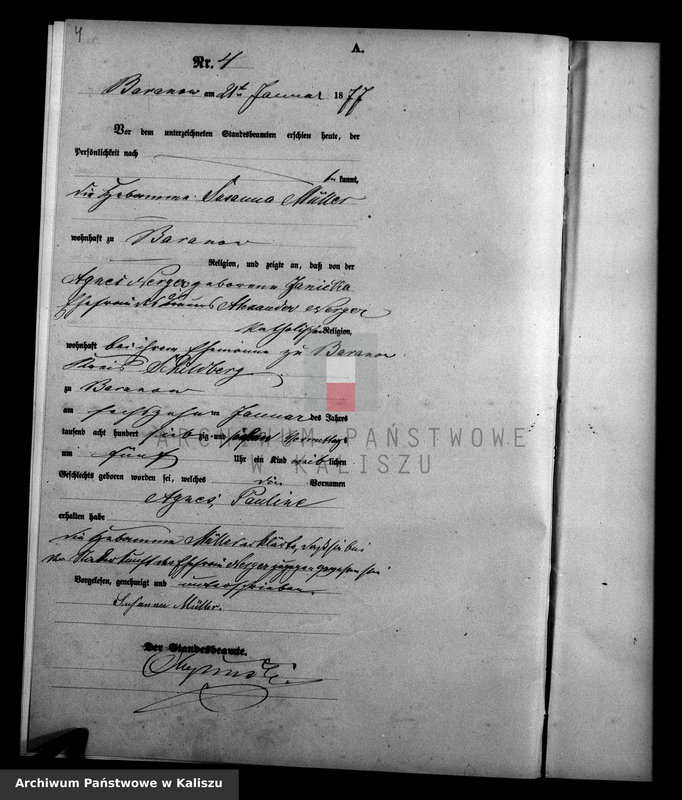 4
A.
Nr. 4
Baranow am 21ten Januar 1877
Vor dem unterzeichneten Standesbeamten erschien heute, der
Persönlichkeit nach
be kannt,
die Hebamme Susanna Müller
wohnhaft zu Baranow
Religion, und zeigte an, daß von der
Agnes geborene Janicka
Ehefrau des Alexander
katholischer Religion,
wohnhaft bei ihrem Ehemanne zu Baranow
Kreis Schildberg
zu Baranow
am sechszehnten Januar des Jahres
tausend acht hundert sieb zig und sieben Vormittags
um fünf Uhr ein Kind weib lichen
Geschlechts geboren worden sei, welches den Vornamen
Agnes, Pauline
erhalten habe
Die Hebamme Müller erklärte, daß sie bei
der Niederkunft der Ehefrau zugegen gewesen sei
Vorgelesen, genehmigt und unterschrieben.
Susanna Müller.
Der Standesbeamte.
ARCHIWUM PAŃSTWOWE
W KALISZU
Archiwum Państwowe w Kaliszu